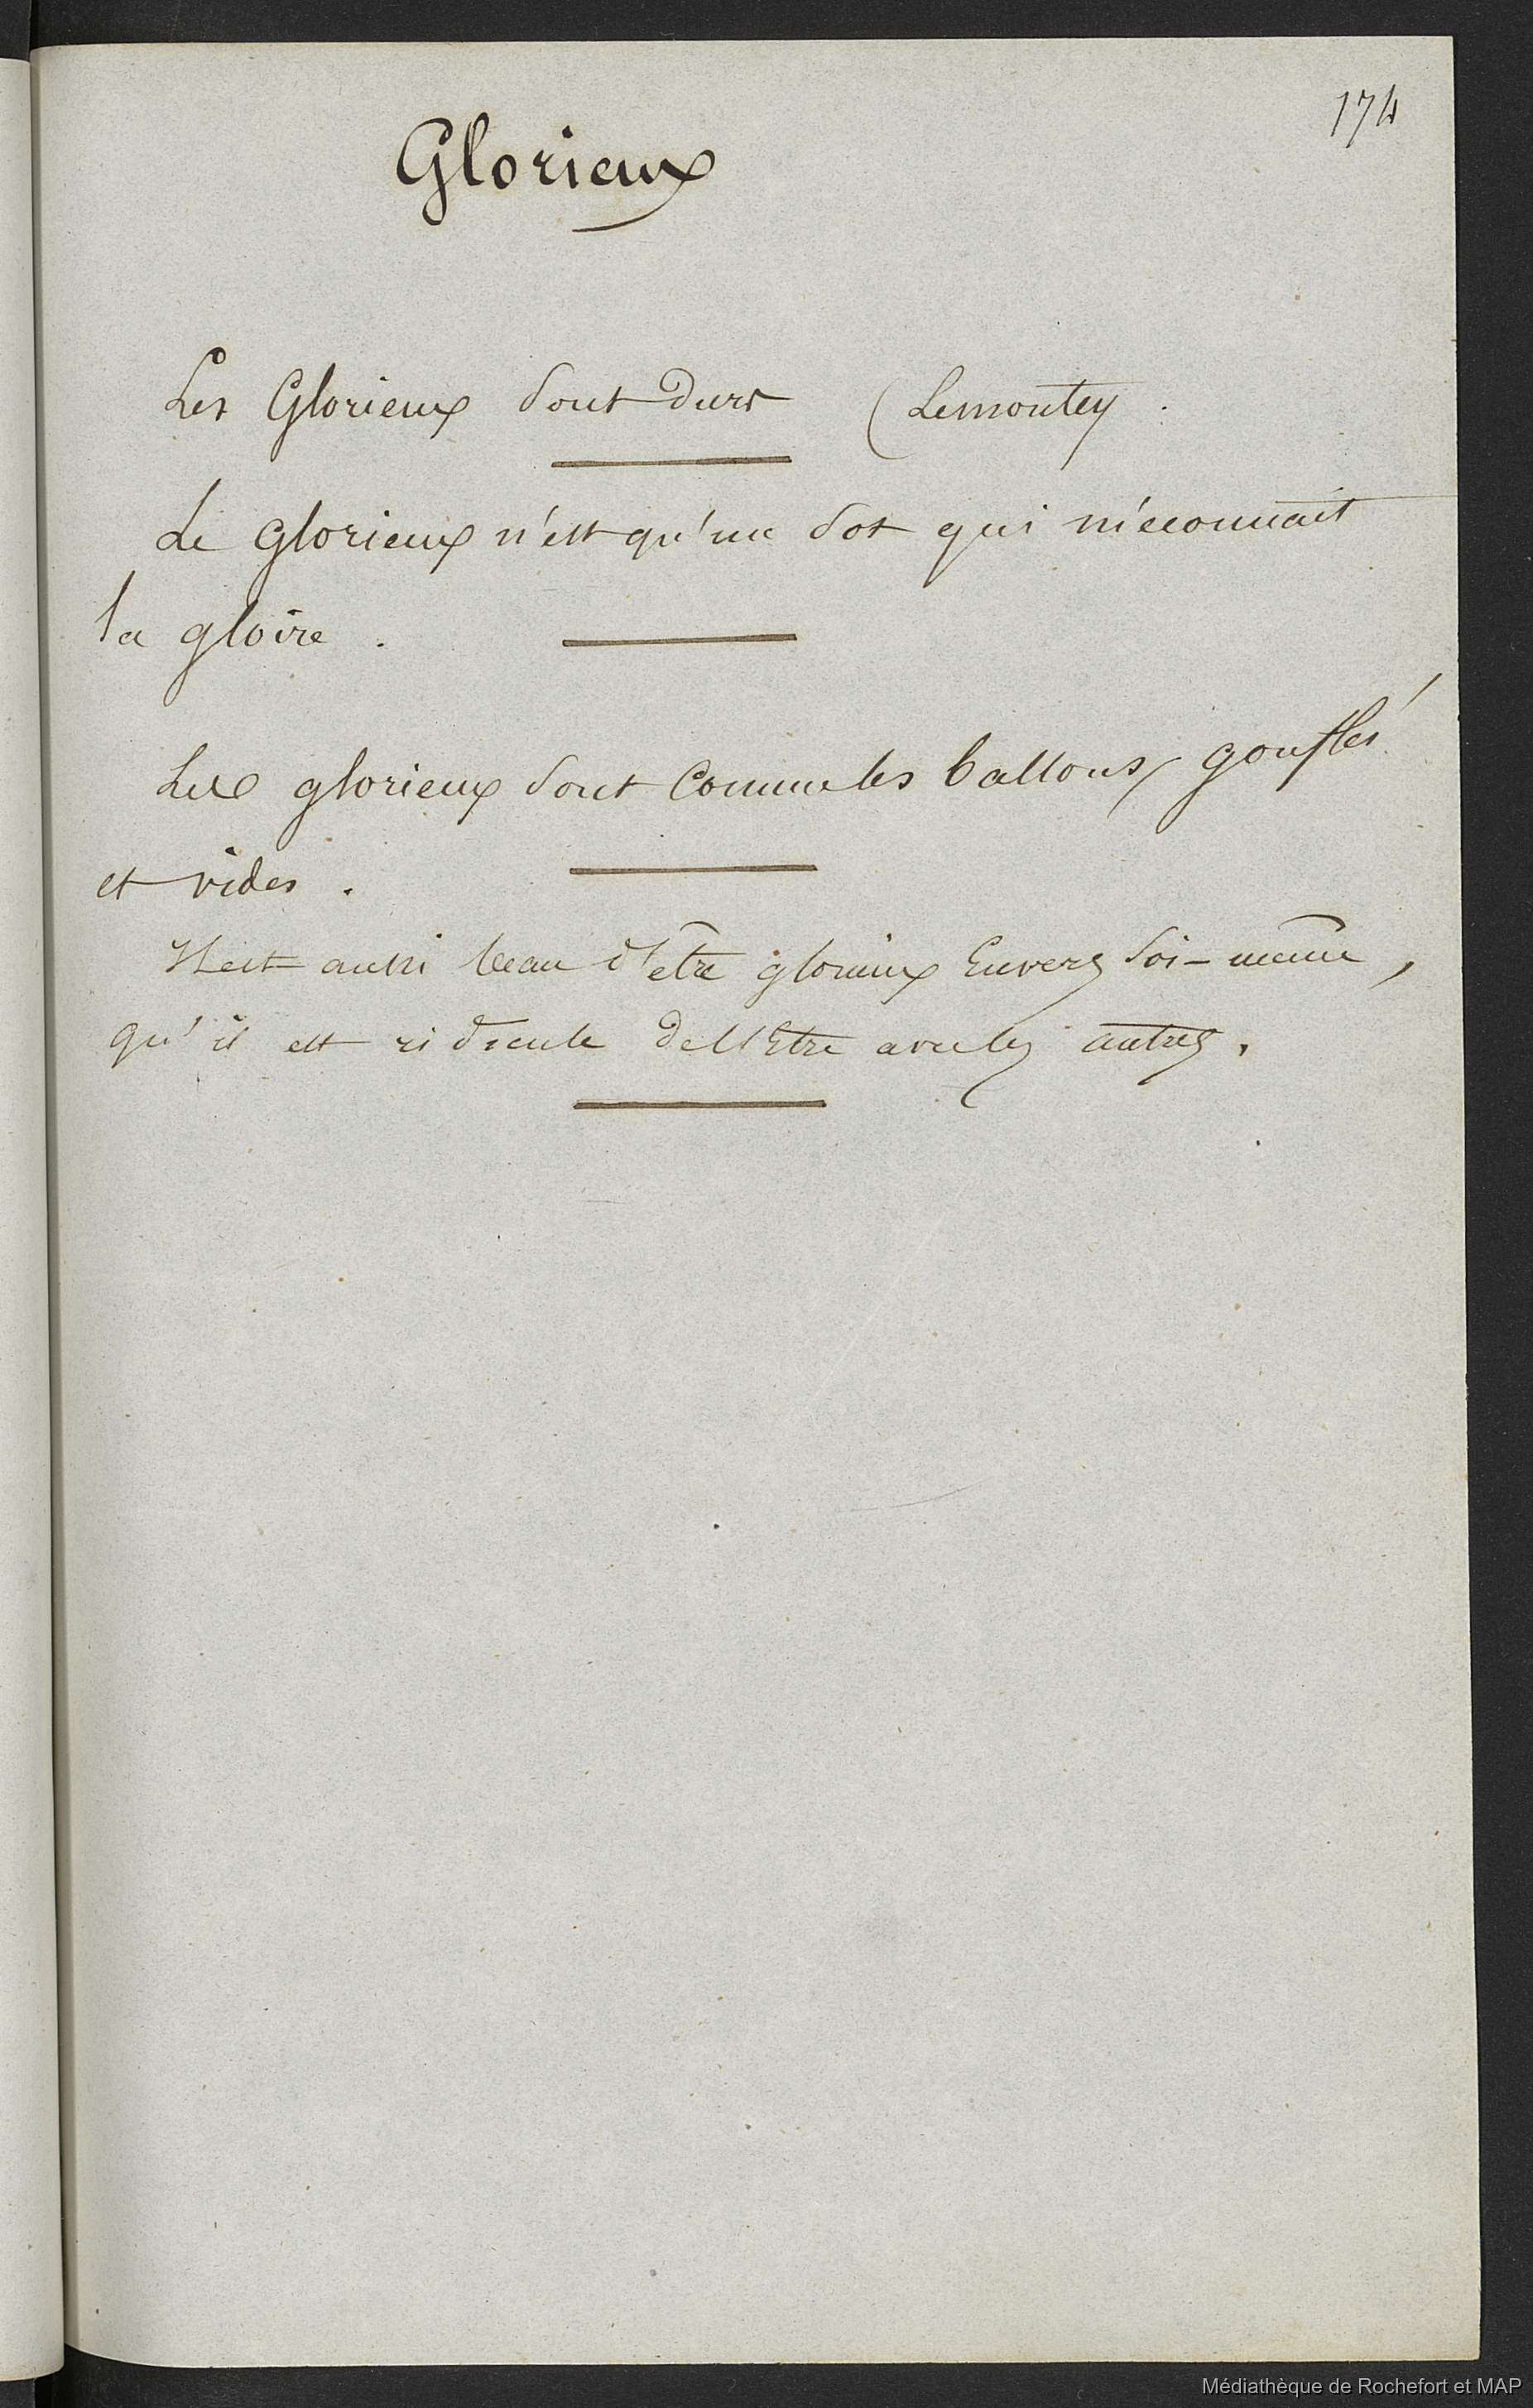 174
Glorieux
Les Glorieux sont durs (Lemontey.
Le Glorieux n'est qu'un sot qui méconnait
la gloire.
Les glorieux sont comme les ballons, gonflés
et vides.
Il est aussi beau d'être glorieux Envers soi-même,
qu'il est ridicule de l'Etre avec les autres.
Médiathèque de Rochefort et MAP